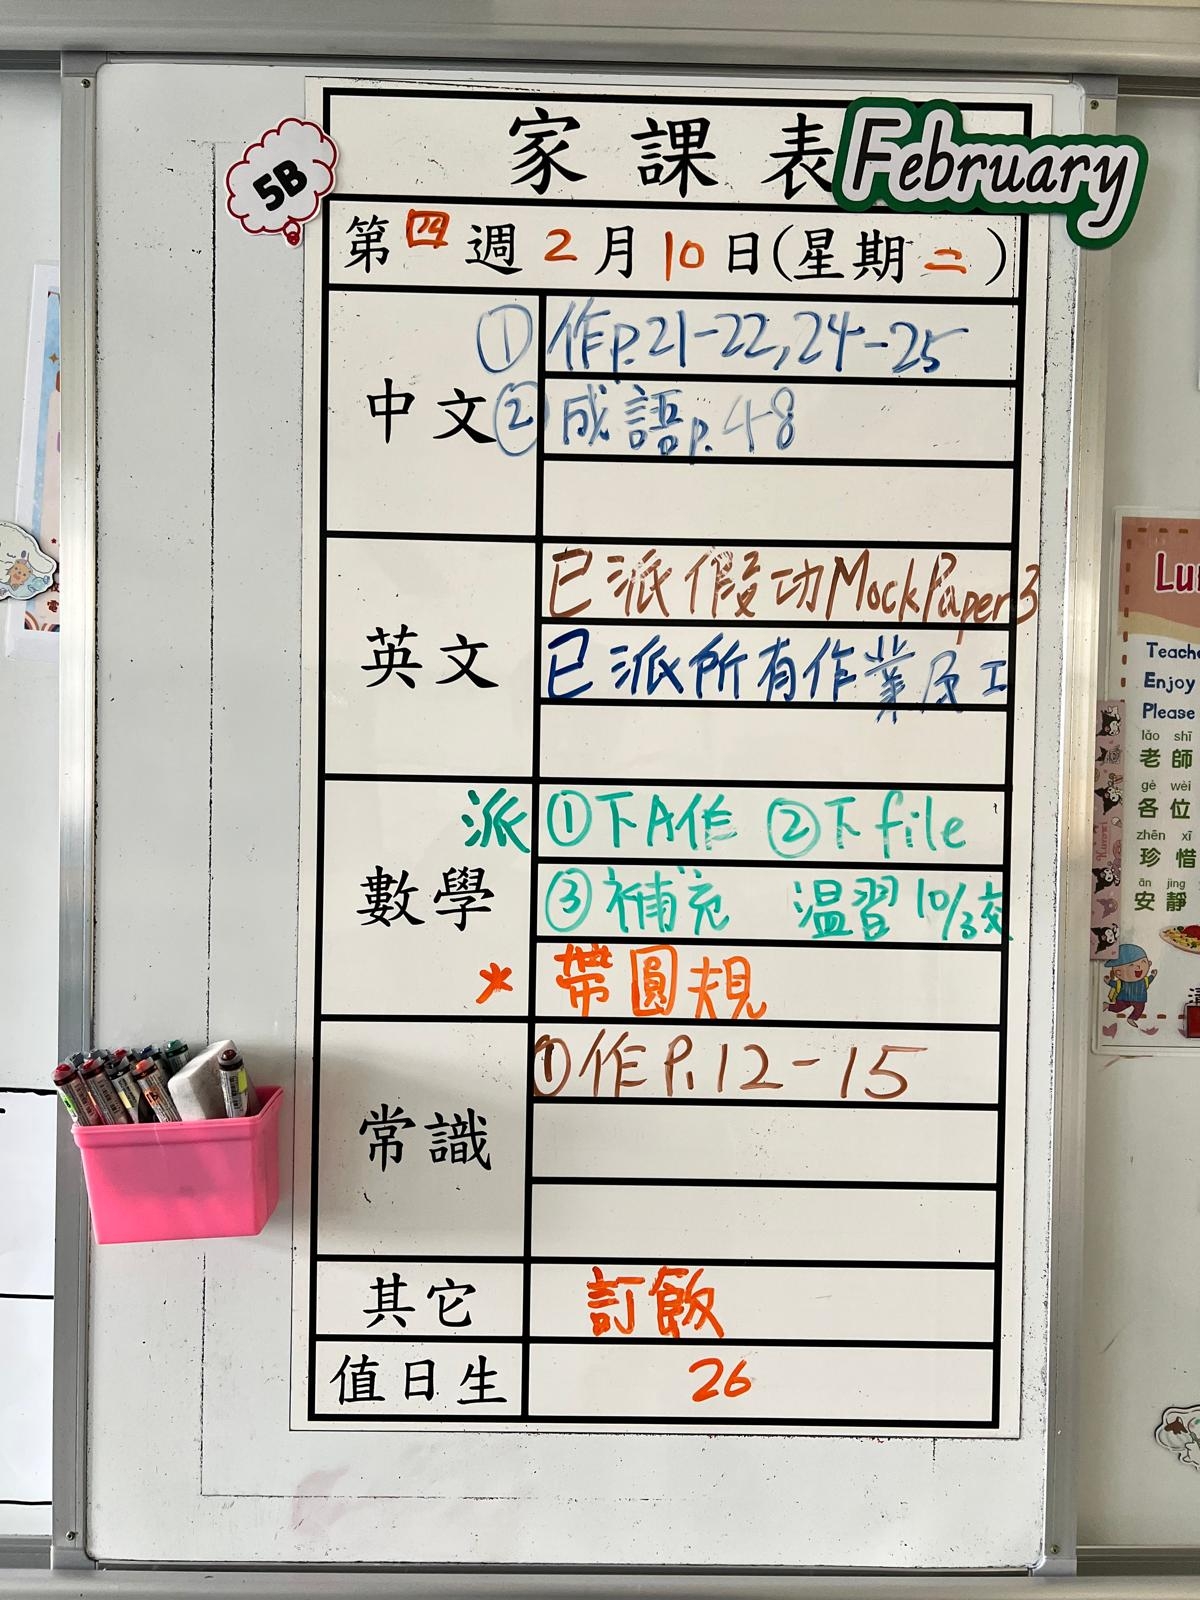 家課表
February
5B
第四週2月10日(星期二)
中文
①作p.21-22,24-25
②成語p.48
英文
已派假功Mock Paper 3
已派所有作業及工
數學
派①下A作 ②下file
③補充 温習10/3交
*帶圓規
常識
①作P.12-15
其它
訂飯
值日生
26
Lu
Teach
Enjoy
Please
lǎo shī
老師
gè wèi
各位
zhēn xī
珍惜
ān jìng
安靜
Kuromi